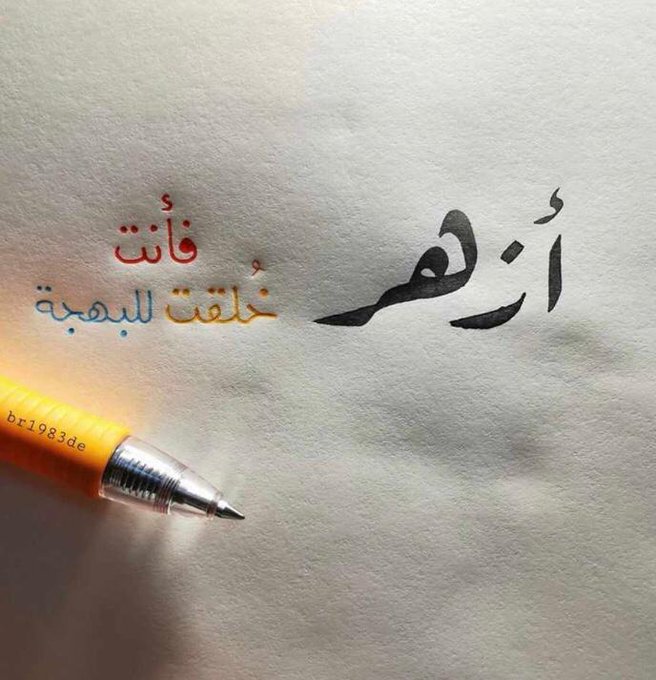 أزهر
فأنت
خُلقت للبهجة
br1983de